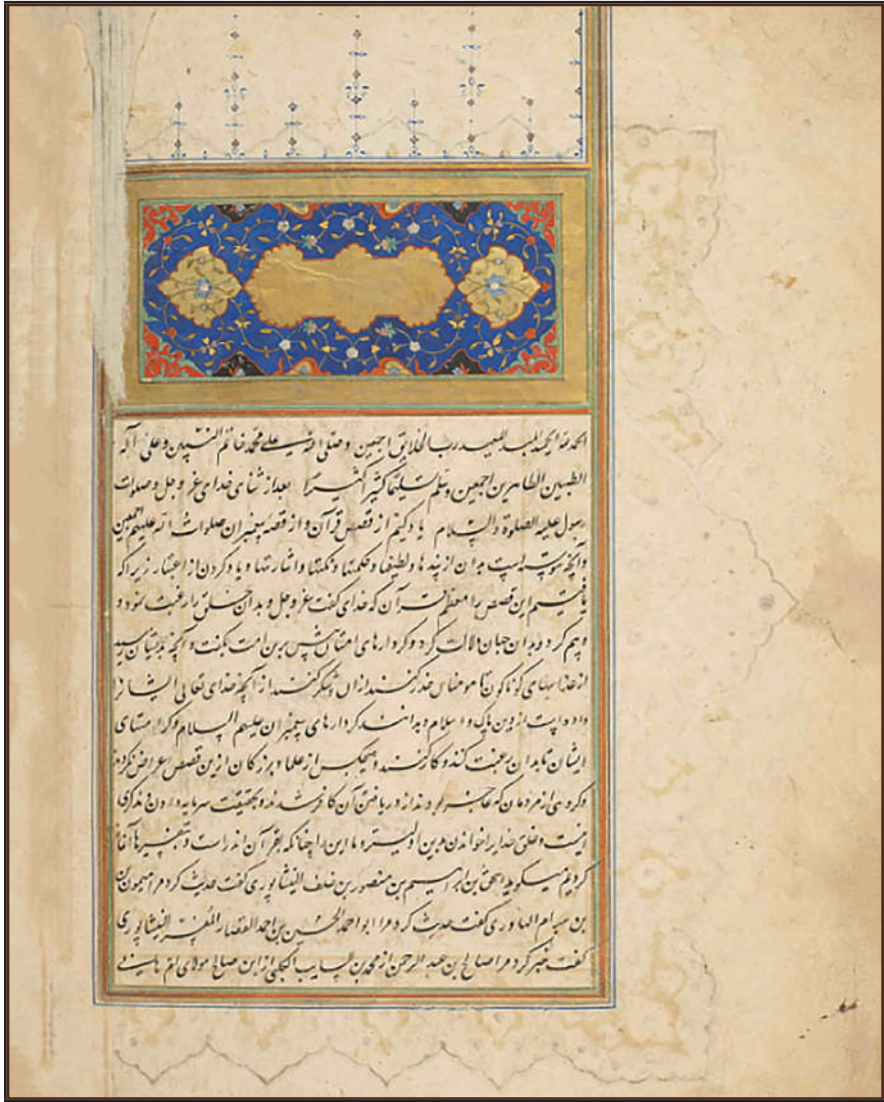 الحمد لله الحمید المبدئ المعید رب الخلایق اجمعین و صلی الله علی محمد خاتم النبیین و علی آله
الطیبین الطاهرین اجمعین و سلم تسلیما کثیرا کثیرا بعد از ثنای خدای عز و جل و صلوات
رسول علیه الصلوة و السلام یاد کنیم از قصص قرآن و از قصه پیغمبران صلوات الله علیهم اجمعین
و آنچه پیوسته است بدان از پندها و لطیفها و حکمتها و نکتها و اشارتها و یاد کردن از اعتبار زیرا که
یافتیم این قصص را معظم قرآن که خدای گفت عز و جل و بدان خلق را رغبت نمود و
و بیم کرد و بدان جهان دلالت کرد و کردارهای امتان پیش برین امت بگفت و آنچه بدیشان رسید
از عذابهای گوناگون تا مومنان حذر کنند از آن و شکر کنند از آنچه خدای تعالی ایشان را
داده است از دین پاک و اسلام و بدانند کردارهای پیغمبران علیهم السلام و کرامتهای
ایشان تا بدان رغبت کنند و کار کنند و هیچکس از علما و بزرگان ازین قصص اعراض نکردند
و گروهی از مردمان که عاجز بودند از دریافتن آن کافر شدند و بحقیقت سرمایه دین و مذکری
اینست و خلق خدایرا خواندن بدین اولیتر و ما این را چنانکه بقرآن اندر است و تفسیرها آغاز
کردیم میگوید اسحق بن ابراهیم بن منصور بن خلف النیشابوری گفت حدیث کرد مرا میمون بن
بن مهرام الهاوری گفت حدیث کرد مرا ابو احمد الحسین بن احمد القصار المفسر النیشابوری
گفت خبر کرد مرا صالح بن عبد الرحمن از محمد بن السایب الکلبی از ابن صالح مولای ام هانی